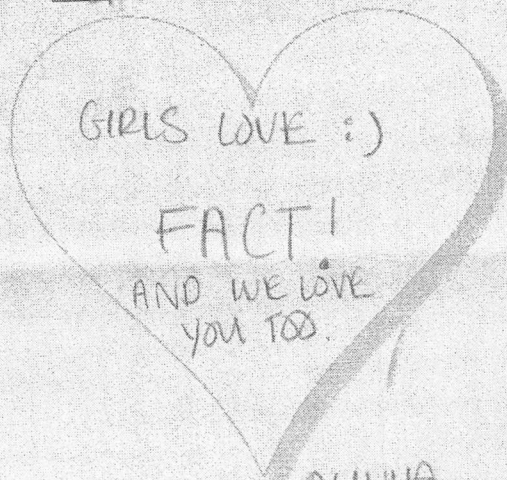 GIRLS LOVE :)
FACT!
AND WE LOVE
YOU TOO.